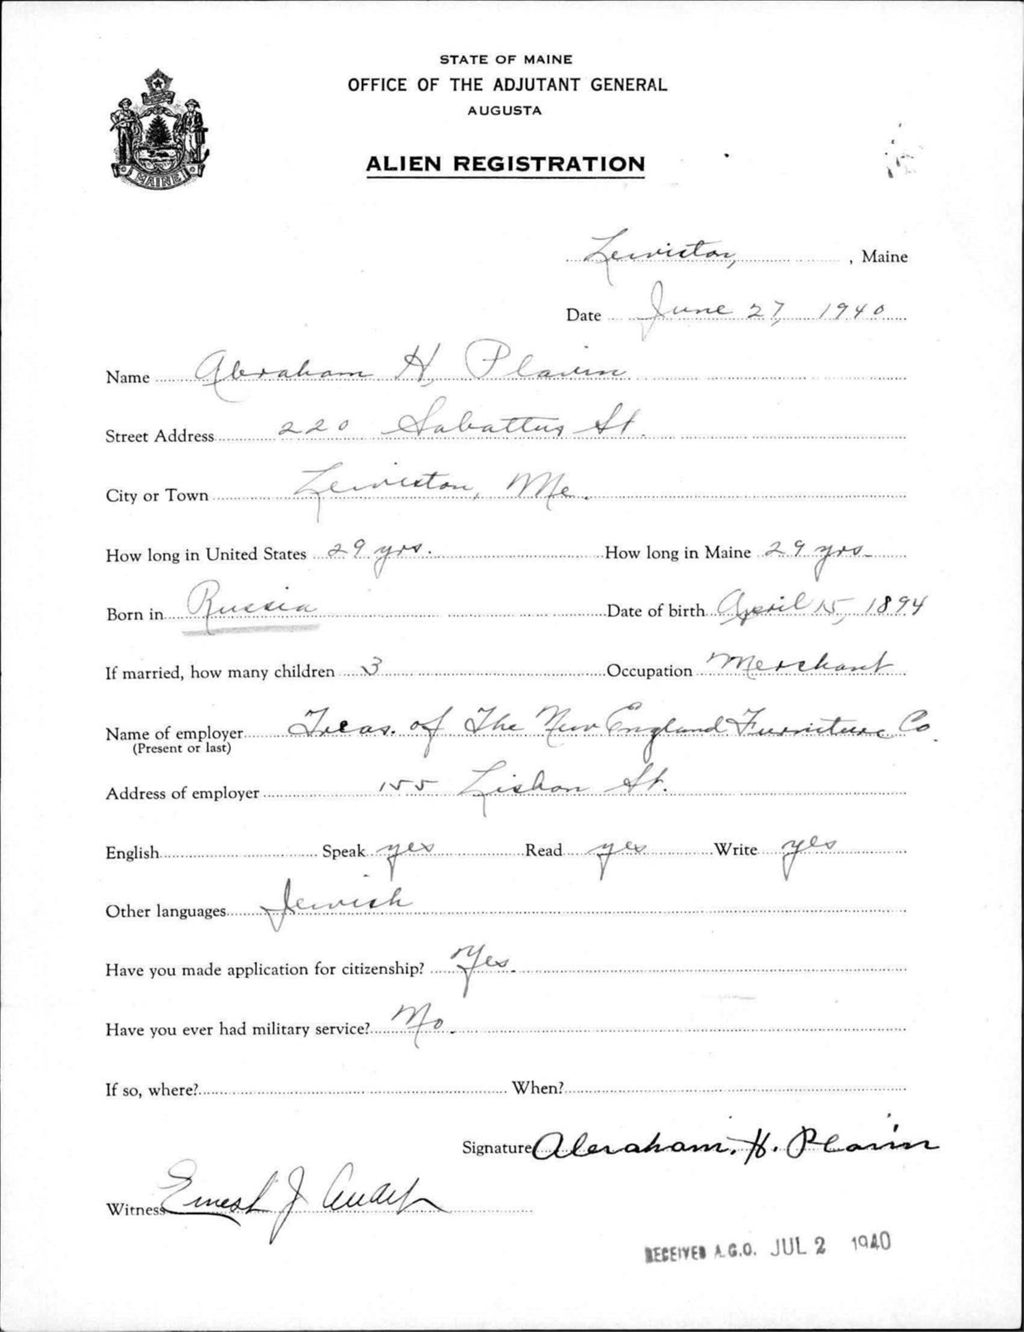 STATE OF MAINE
OFFICE OF THE ADJUTANT GENERAL
AUGUSTA
MAINE
ALIEN REGISTRATION
Lewiston, , Maine
Date June 27, 1940
Name Abraham H. Plavin
Street Address 220 Sabattus St.
City or Town Lewiston, Me.
How long in United States 29 yrs. How long in Maine 29 yrs.
Born in Russia Date of birth April 15, 1894
If married, how many children 3 Occupation Merchant
Name of employer Treas. of The New England Furniture Co.
(Present or last)
Address of employer 155 Lisbon St.
English Speak yes Read yes Write yes
Other languages Jewish
Have you made application for citizenship? Yes.
Have you ever had military service? No.
If so, where? When?
Signature Abraham. H. Plavin
Witness Ernest J
RECEIVED A.G.O. JUL 2 1940